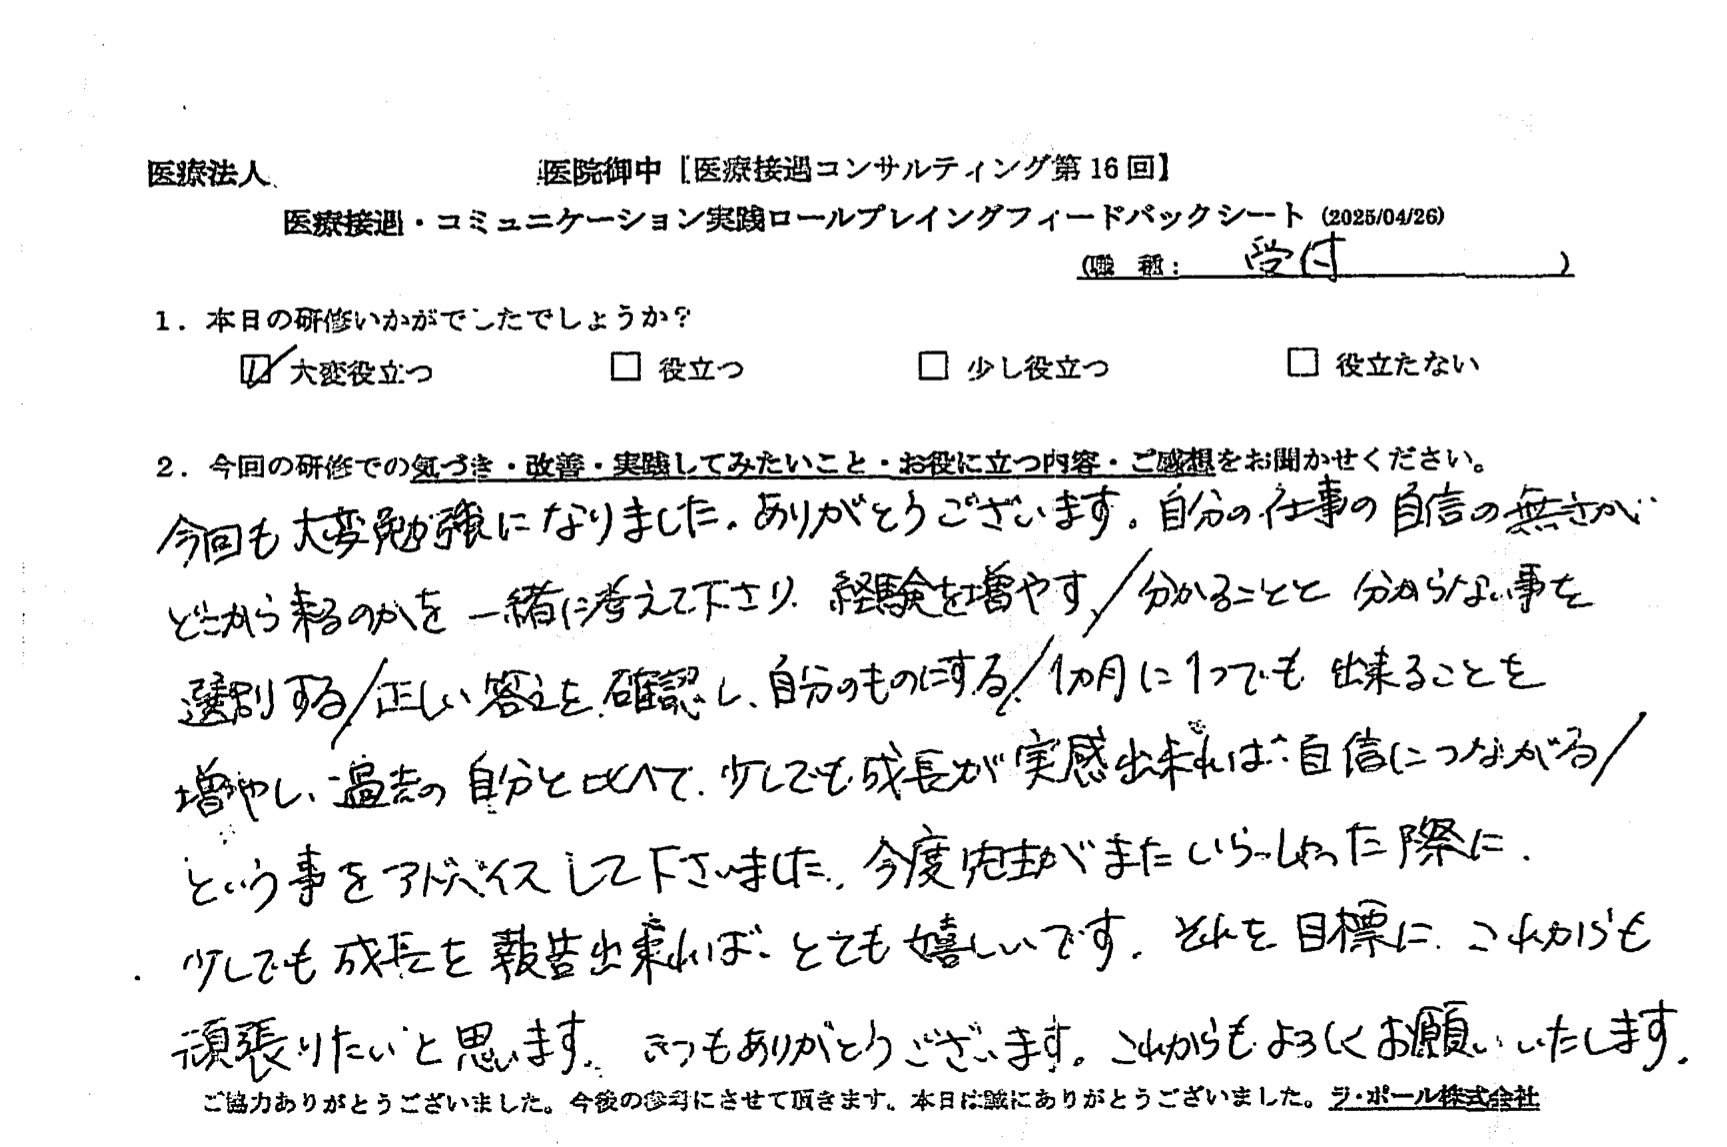 医療法人 医院御中【医療接遇コンサルティング第16回】
医療接遇・コミュニケーション実践ロールプレイングフィードバックシート (2025/04/26)
(職 種: 受付 )
1. 本日の研修いかがでしたでしょうか?
☑ 大変役立つ □ 役立つ □ 少し役立つ □ 役立たない
2. 今回の研修での気づき・改善・実践してみたいこと・お役に立つ内容・ご感想をお聞かせください。
今回も大変勉強になりました。ありがとうございます。自分の仕事の自信の無さが
どこから来るのかを一緒に考えて下さり、経験を増やす/分かることと分からない事を
選別する/正しい答えを確認し、自分のものにする/1ヵ月に1つでも出来ることを
増やし、過去の自分と比べて、少しでも成長が実感出来れば、自信につながる/
という事をアドバイスして下さいました。今度先生がまたいらっしゃった際に、
少しでも成長を報告出来れば、とても嬉しいです。それを目標に、これからも
頑張りたいと思います。いつもありがとうございます。これからもよろしくお願いいたします。
ご協力ありがとうございました。今後の参考にさせて頂きます。本日は誠にありがとうございました。ラ・ポール株式会社